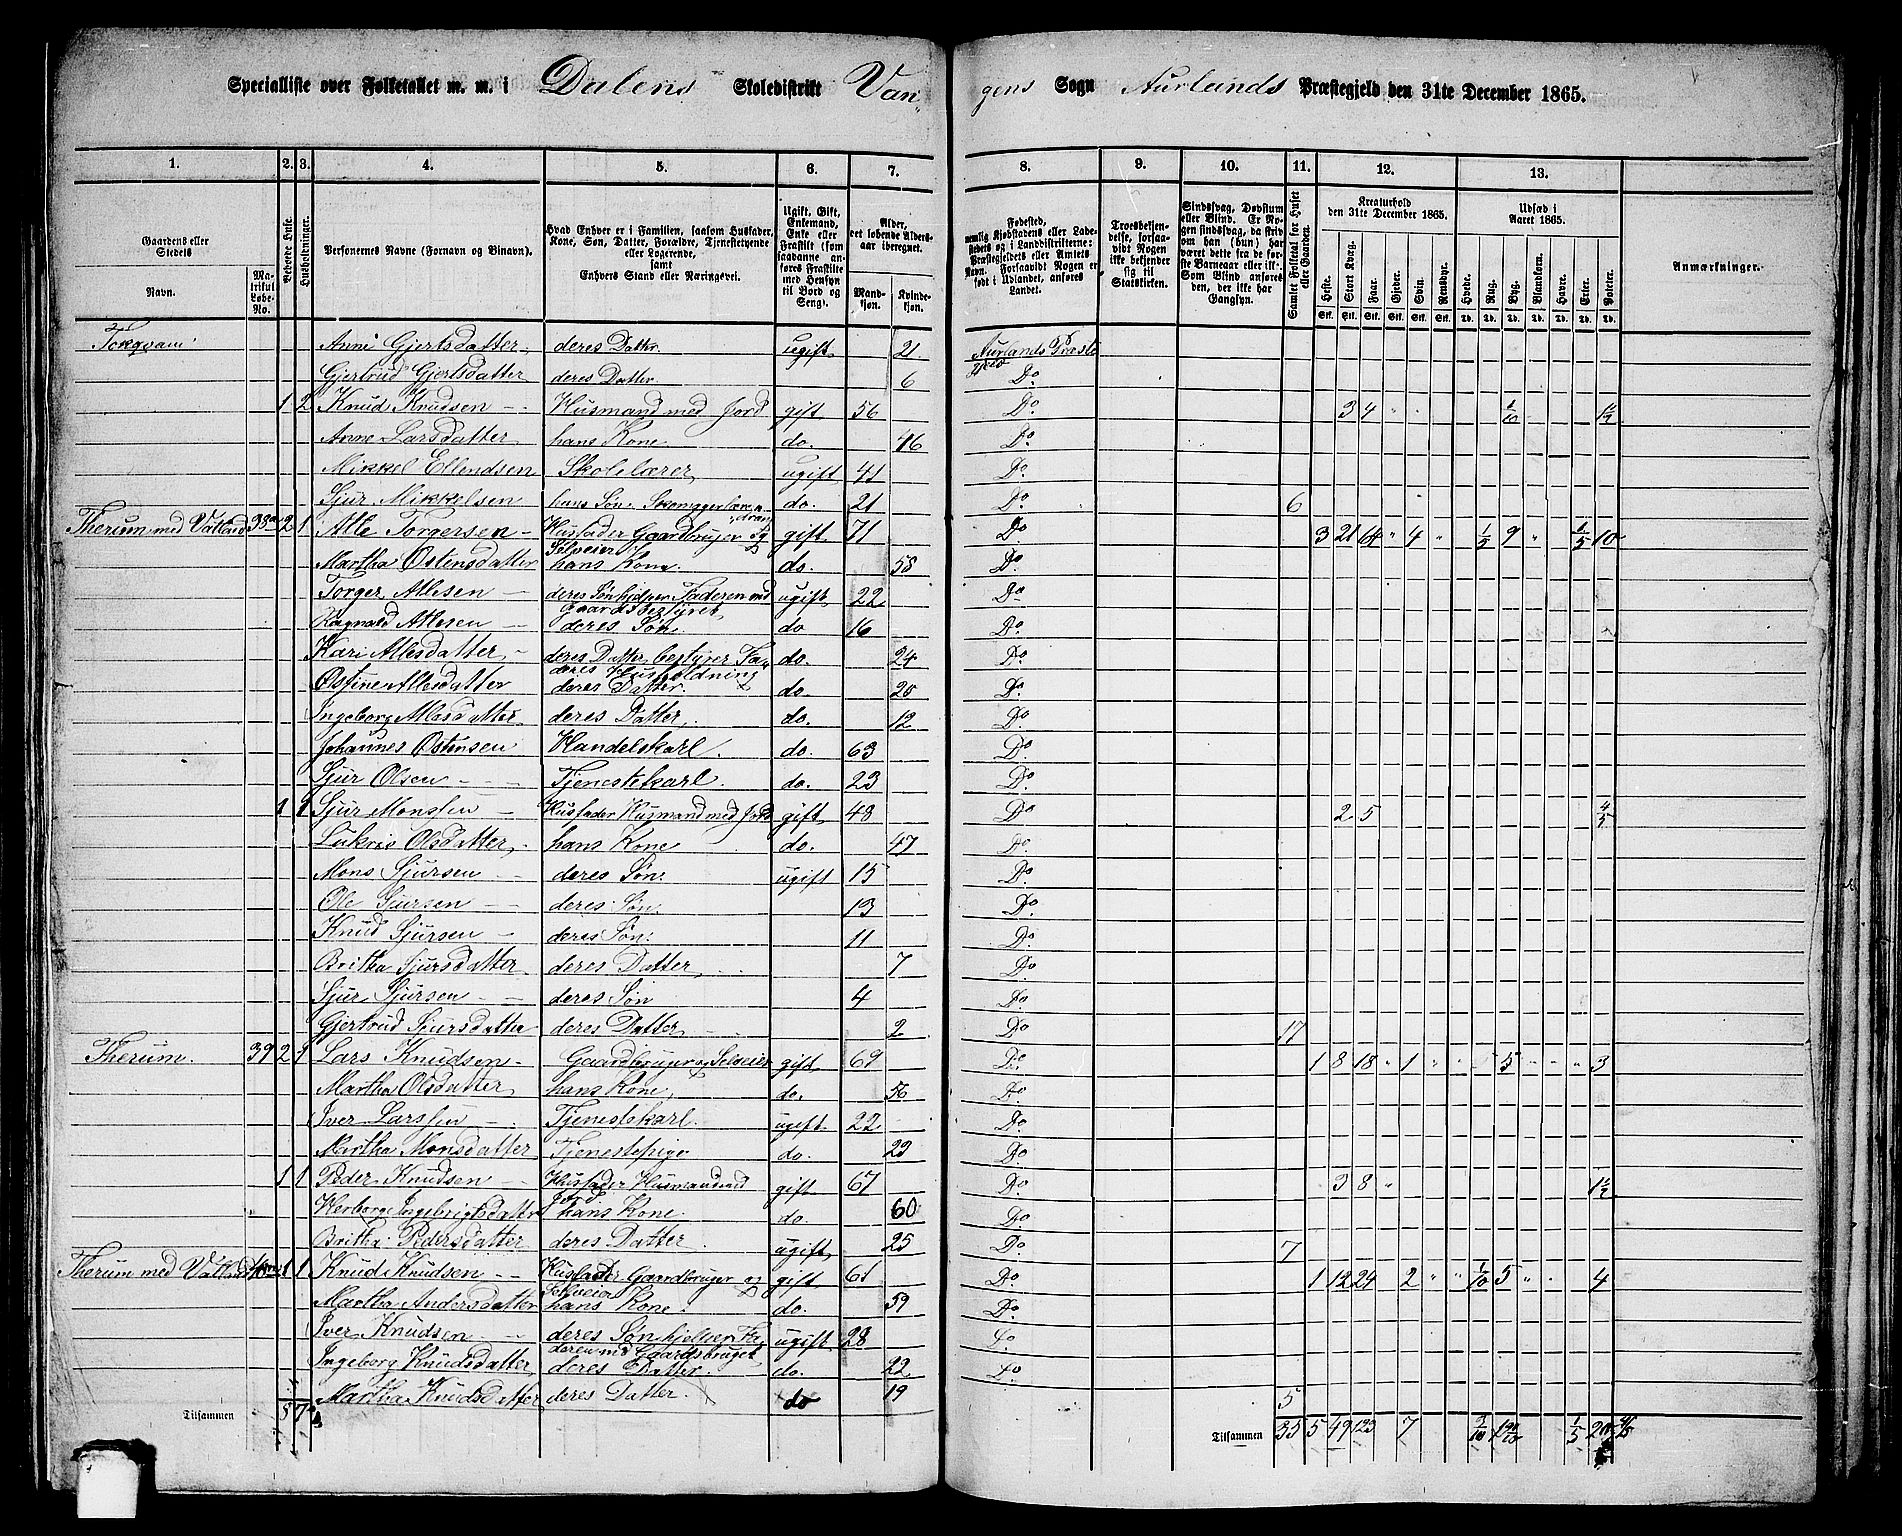 Specialliste over Folketallet m. m. i Dalens Skoledistrikt Vangens Sogn Aurlands Præstegjeld den 31te December 1865.
1. 2. 3. 4. 5. 6. 7. 8. 9. 10. 11. 12. 13.
Gaardens eller Stedets Navn. Matrikul Løbe-No. Beboede Huse. Husholdninger. Personernes Navne (Fornavn og Binavn). Hvad Enhver er i Familien, saasom Husfader, Kone, Søn, Datter, Forældre, Tjenestetyende eller Logerende, samt Enhvers Stand eller Næringsvei. Ugift, Gift, Enkemand, Enke eller Fraskilt (som saadanne anføres Fraskilte med Hensyn til Bord og Seng). Alder, det løbende Aldersaar iberegnet. Mandkjøn. Kvindekjøn.
Fødested, nemlig Kjøbstadens eller Ladestedets og i Landdistrikterne: Præstegjeldets eller Amtets Navn. Forsaavidt Nogen er født i Udlandet, anføres Landet. Troesbekjendelse, forsaavidt Nogen ikke bekjender sig til Statskirken. Sindssvag, Døvstum eller Blind. Er Nogen sindssvag, da skrives om han (hun) har været dette fra de første Barneaar eller ikke. Som Blind anføres den, der ikke har Gangsyn. Samlet Folketal for Huset eller Gaarden. Kreaturhold den 31te December 1865. Udsæd i Aaret 1865. Anmærkninger.
Heste. Stort Kvæg. Faar. Gjeder. Svin. Rensdyr. Hvede. Rug. Byg. Blandkorn. Havre. Erter. Poteter.
Tokqvam Anne Gjertsdatter deres Datter ugift 21 Aurlands Præstegjeld
Gjertrud Gjertsdatter deres Datter 6 Do
1 2 Knud Knudsen Husmand med Jord gift 56 Do 3 4
Anne Larsdatter hans Kone do. 46 Do
Mikkel Ellendsen Skolelærer ugift 41 Do
Sjur Mikkelsen hans Søn do. 21 Do 6
Therum med Vatland 38 2 1 Atle Torgersen Husfader Gaardbruger og Selveier gift 71 Do 3 21 64 " 4 " 1/5 9 " 1/5 10
Martha Ostensdatter hans Kone do. 58 Do
Torger Atlesen deres Søn hjelper Faderen med Gaardsbestyret ugift 22 Do
Ragnald Atlesen deres Søn do 16 Do
Kari Atlesdatter deres Datter, bestyrer Faderes Husholdning do. 24 Do
Ostine Atlesdatter deres Datter do. 20 Do
Ingeborg Atlesdatter deres Datter do. 12 Do
Johannes Ostensen Handelskarl do. 63 Do
Sjur Olsen Tjenestekarl do. 23 Do
1 1 Sjur Monssen Husfader Husmand med Jord gift 48 Do 2 5 4/5
Lukris Olsdatter hans Kone do. 47 Do
Mons Sjursen deres Søn ugift 15 Do
Ole Sjursen deres Søn 13 Do
Knud Sjursen deres Søn 11 Do
Britha Sjursdatter deres Datter 7 Do
Sjur Sjursen deres Søn 4 Do
Gjertrud Sjursdatter deres Datter 2 Do 17
Therum. 39 2 1 Lars Knudsen Gaardbruger og Selveier gift 69 Do 1 8 18 " 1 " 5 " 3
Martha Olsdatter hans Kone do. 56 Do
Iver Larssen Tjenestekarl ugift 22 Do
Martha Monsdatter Tjenestepige do. 23 Do
1 1 Peder Knudsen Husfader Husmand med Jord. gift 67 Do 3 8 "
Herborg Ingebrigtsdatter hans Kone do. 60 Do
Britha Pedersdatter deres Datter ugift 25 Do 7
Therum med Vatland 1 1 Knud Knudsen Husfader Gaardbruger og Selveier gift 61 Do 1 12 24 2 " " 1/10 5 " 4
Martha Andersdatter hans Kone do. 59 Do
Iver Knudsen deres Søn hjelper Faderen med Gaardsbruget ugift 28 do
Ingeborg Knudsdatter deres Datter do. 22 do
Martha Knudsdatter deres Datter do 19 5
Tilsammen 8 7 Tilsammen 35 5 49 123 7